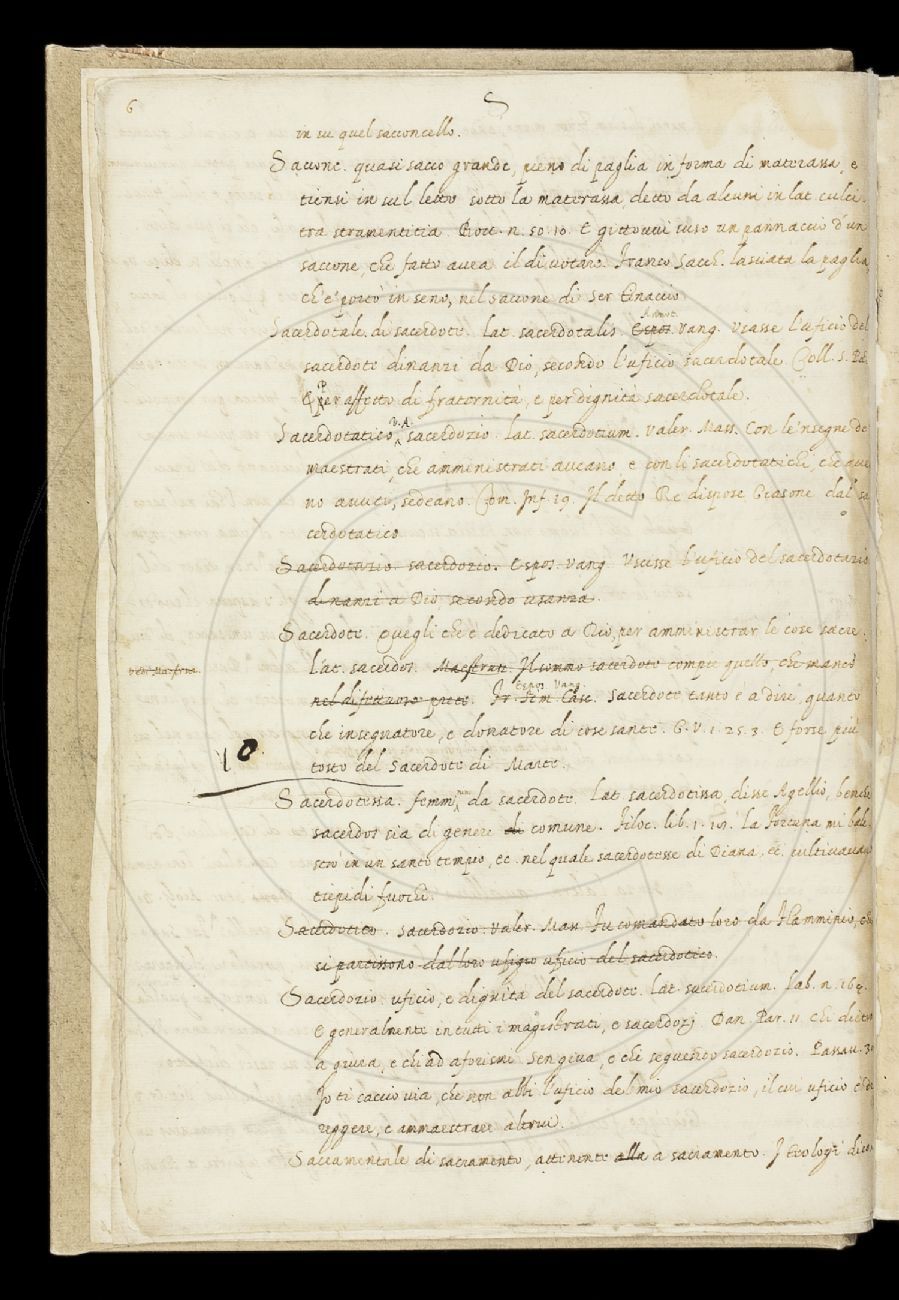 6
S
in su quel sacconcello.
Saccone. quasi sacco grande, pieno di paglia in forma di materassa, e
tiensi in sul letto sotto la materassa, detto da alcuni in lat. culci-
tra stramentitia. Bocc. n. 50. 10. E gittovvi suso un pannaccio d'un
saccone, che fatto avea il di votare. Franco Sacch. lasciata la paglia
ch'e' portò in seno, nel saccone di Ser
Annot.
Sacerdotale. di sacerdote. lat. sacerdotalis. Espos. Vang. Usasse l'uficio del
sacerdote dinanzi da Dio, secondo l'uficio sacerdotale. Coll. S. Pad.
E per affetto di fraternità, e per dignità sacerdotale.
V. A.
Sacerdotatico, sacerdozio. lat. sacerdotium. Valer. Mass. Con le 'nsegne de
maestrati, che amministrati aveano e con li sacerdotatichi, che que
no avuti, sedeano. Com. Inf. 19. Il detto Re dispose Giasone dal sa
cerdotatico
Sacerdotario. sacerdozio. Espos. Vang. Uscisse l'uficio del sacerdotario
dinanzi a Dio, secondo usanza.
Sacerdote. Quegli che è dedicato a Dio, per amministrar le cose sacre.
Lat. sacerdos. Maestruzz. Il sommo sacerdote compie quello, che mancò
Espos. Vang.
nel prete. Sacerdote tanto è a dire, quanto
che insegnatore, e donatore di cose sante. G. V. 1. 25. 3. E forse più
tosto del Sacerdote di Marte.
10.
Sacerdotessa. femm. da sacerdote. Lat. sacerdotissa, disse Agellio, benchè
sacerdos sia di genere di comune. Filoc. lib. 1. 19. La Fortuna mi bale-
strò in un santo tempio, ec. nel quale sacerdotesse di Diana, ec. cultivavan
tiepidi fuochi.
Sacerdotico. sacerdozio. Valer. Mass. Fu comandato loro da Flamminio, che
si partissono dal loro ufizio uficio del sacerdotico.
Sacerdozio. uficio, e dignità del sacerdote. Lat. sacerdotium. Lab. n. 16
E generalmente in tutti i magistrati, e sacerdozj. Dan. Par. 11. Chi dietro
a giura, e chi ad aforismi Sen giva, e chi seguendo sacerdozio. Passav. 3
Io ti caccio via, che non abbi l'uficio del mio sacerdozio, il cui uficio è di
reggere, e ammaestrare altrui.
Sacramentale di sacramento, attenente alla a sacramento. I teologi dico